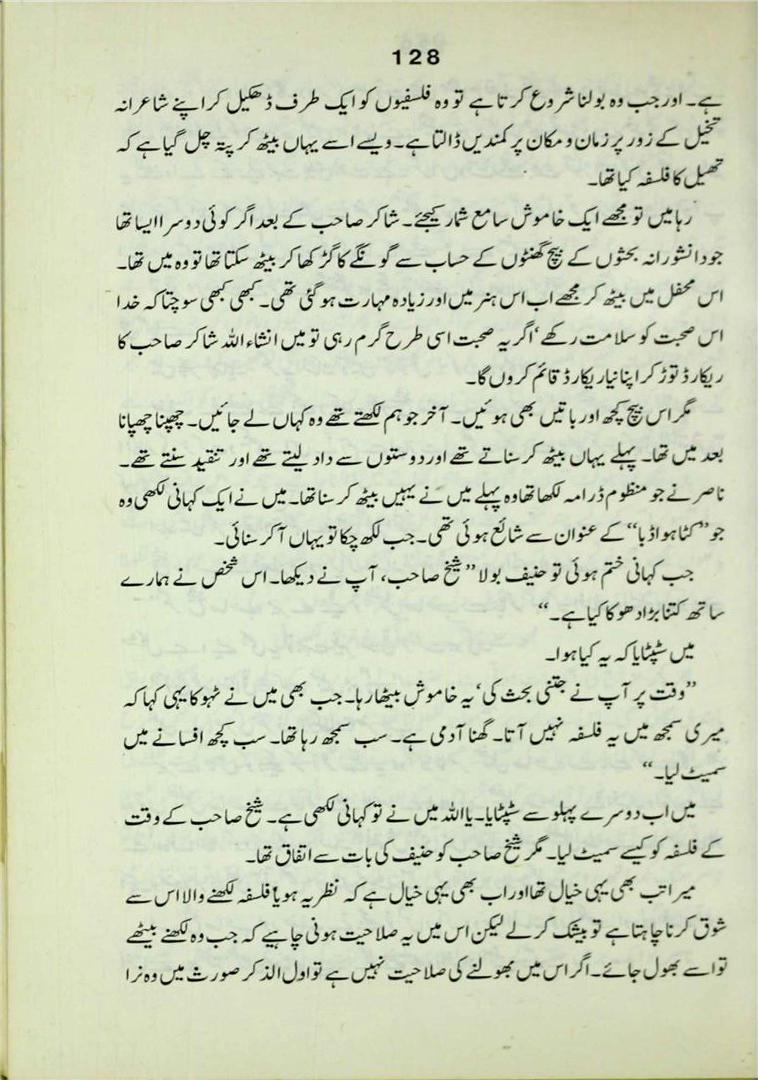 128
ہے۔ اور جب وہ بولنا شروع کرتا ہے تو وہ فلسفیوں کو ایک طرف ڈھکیل کر اپنے شاعرانہ
تخیل کے زور پر زمان و مکان پر کمندیں ڈالتا ہے۔ ویسے اسے یہاں بیٹھ کر پتہ چل گیا ہے کہ
تھیل کا فلسفہ کیا تھا۔
رہا میں تو مجھے ایک خاموش سامع شمار کیجئے۔ شاکر صاحب کے بعد اگر کوئی دوسرا ایسا تھا
جو دانشورانہ بحثوں کے بیچ گھنٹوں کے حساب سے گونگے کا گڑ کھا کر بیٹھ سکتا تھا تو وہ میں تھا۔
اس محفل میں بیٹھ کر مجھے اب اس ہنر میں اور زیادہ مہارت ہو گئی تھی۔ کبھی کبھی سوچتا کہ خدا
اس صحبت کو سلامت رکھے، اگر یہ صحبت اسی طرح گرم رہی تو میں انشاء اللہ شاکر صاحب کا
ریکارڈ توڑ کر اپنا نیا ریکارڈ قائم کروں گا۔
مگر اس بیچ کچھ اور باتیں بھی ہوئیں۔ آخر جو ہم لکھتے تھے وہ کہاں لے جائیں۔ چھپنا چھپانا
بعد میں تھا۔ پہلے یہاں بیٹھ کر سناتے تھے اور دوستوں سے داد لیتے تھے اور تنقید سنتے تھے۔
ناصر نے جو منظوم ڈرامہ لکھا تھا وہ پہلے میں نے یہیں بیٹھ کر سنا تھا۔ میں نے ایک کہانی لکھی وہ
جو ”کٹا ہوا ڈبا“ کے عنوان سے شائع ہوئی تھی۔ جب لکھ چکا تو یہاں آ کر سنائی۔
جب کہانی ختم ہوئی تو حنیف بولا ”شیخ صاحب، آپ نے دیکھا۔ اس شخص نے ہمارے
ساتھ کتنا بڑا دھوکا کیا ہے۔“
میں سٹپٹایا کہ یہ کیا ہوا۔
”وقت پر آپ نے جتنی بحث کی، یہ خاموش بیٹھا رہا۔ جب بھی میں نے ٹہوکا یہی کہا کہ
میری سمجھ میں یہ فلسفہ نہیں آتا۔ گھنا آدمی ہے۔ سب سمجھ رہا تھا۔ سب کچھ افسانے میں
سمیٹ لیا۔“
میں اب دوسرے پہلو سے سٹپٹایا۔ یا اللہ میں نے تو کہانی لکھی ہے۔ شیخ صاحب کے وقت
کے فلسفہ کو کیسے سمیٹ لیا۔ مگر شیخ صاحب کو حنیف کی بات سے اتفاق تھا۔
میرا تب بھی یہی خیال تھا اور اب بھی یہی خیال ہے کہ نظریہ ہو یا فلسفہ لکھنے والا اس سے
شوق کرنا چاہتا ہے تو بیشک کر لے لیکن اس میں یہ صلاحیت ہونی چاہیے کہ جب وہ لکھنے بیٹھے
تو اسے بھول جائے۔ اگر اس میں بھولنے کی صلاحیت نہیں ہے تو اول الذکر صورت میں وہ نرا